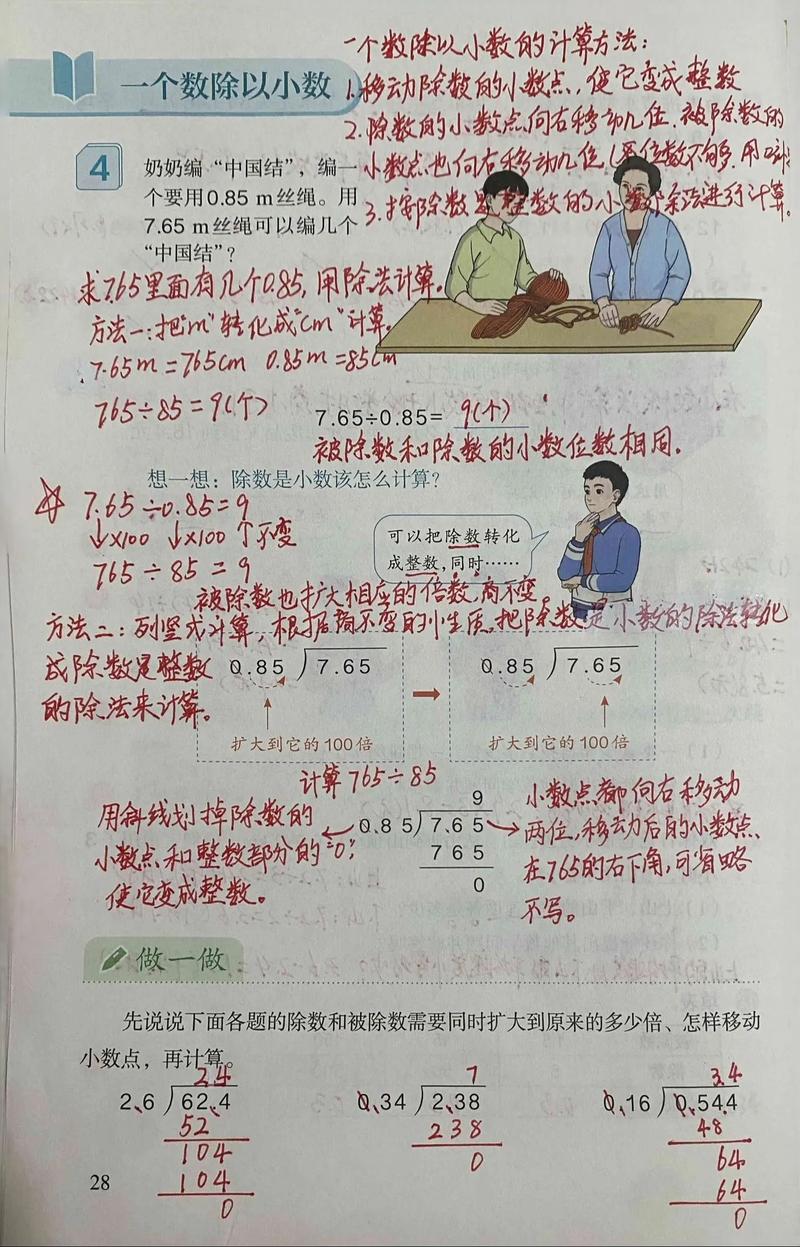 一个数除以小数的计算方法:
1.移动除数的小数点,使它变成整数
2.除数的小数点向右移动几位.被除数的
小数点也向右移动几位(
3.按除数是整数的小数除法进行计算。
一个数除以小数
4
奶奶编“中国结”,编一
个要用0.85 m丝绳。用
7.65 m丝绳可以编几个
“中国结”?
求7.65里面有几个0.85,用除法计算。
方法一:把"m"转化成"cm"计算。
7.65m=765cm 0.85m=85cm
765÷85=9(个)
7.65÷0.85= 9(个)
被除数和除数的小数位数相同.
想一想:除数是小数该怎么计算?
7.65÷0.85=9
↓×100 ↓×100 不变
765÷85=9
可以把除数转化
成整数,同时……
被除数也扩大相应的倍数,商不变。
方法二:列竖式计算,根据商不变的性质,把除数是小数的除法转化
成除数是整数
的除法来计算。
0.85 7.65 → 0.85 7.65
扩大到它的100倍 扩大到它的100倍
计算765÷85
用斜线划掉除数的
小数点和整数部分的"0",
使它变成整数。
9
0.85 7.65
765
0
小数点都向右移动
两位,移动后的小数点
在765的右下角,可省略
不写。
做一做
先说说下面各题的除数和被除数需要同时扩大到原来的多少倍、怎样移动
小数点,再计算。
24 7 3.4
2.6 62.4 0.34 2.38 0.16 0.544
52 238 48
104 0 64
104 64
0 0
28